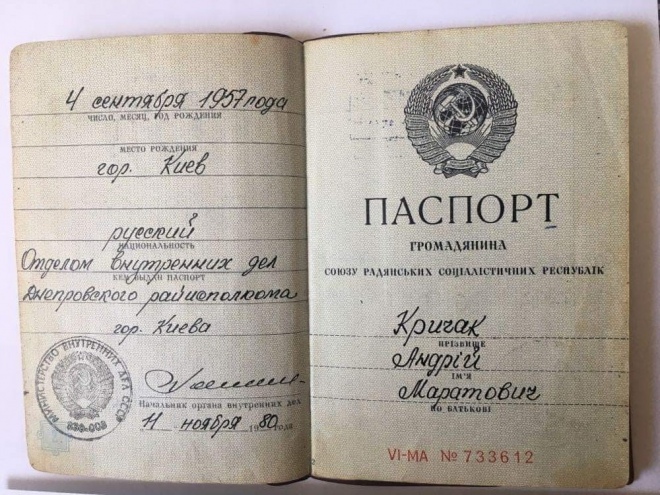 4 сентября 1957 года
ЧИСЛО, МЕСЯЦ, ГОД РОЖДЕНИЯ
МЕСТО РОЖДЕНИЯ
гор. Киев
русский
НАЦИОНАЛЬНОСТЬ
Отделом внутренних дел
КЕМ ВЫДАН ПАСПОРТ
Днепровского райисполкома
гор. Киева
МИНИСТЕРСТВО ВНУТРЕННИХ ДЕЛ СССР
Начальник органа внутренних дел
11 ноября 1980 года
ПАСПОРТ
ГРОМАДЯНИНА
СОЮЗУ РАДЯНСЬКИХ СОЦІАЛІСТИЧНИХ РЕСПУБЛІК
Кричак
ПРІЗВИЩЕ
Андрій
ІМ'Я
Маратович
ПО БАТЬКОВІ
VI-МА № 733612